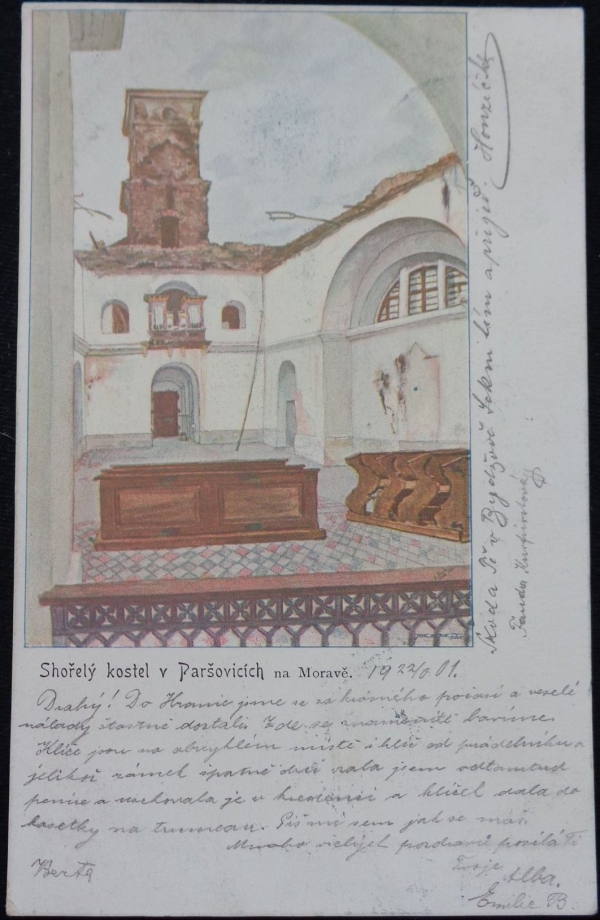 Shořelý kostel v Paršovicích na Moravě. 19 22/6 01.
Drahý! Do Hranic jsme se za krásného počasí a veselé
nálady šťastně dostali. Zde se znamenitě bavíme.
Klíče jsou na obvyklém místě i klíč od prádelníku a
jelikož zámek špatně drží vzala jsem odtamtud
peníze a uschovala je v kredenci a klíček dala do
kasetky na trumeau. Piš mi sem jak se máš.
Mnoho vřelých pozdravů posílá Ti
Tvoje Alba.
Berta
Emilie B.
Škoda Tě v Bydžově Sekni tím a přijeď. Honzíček
Fanda